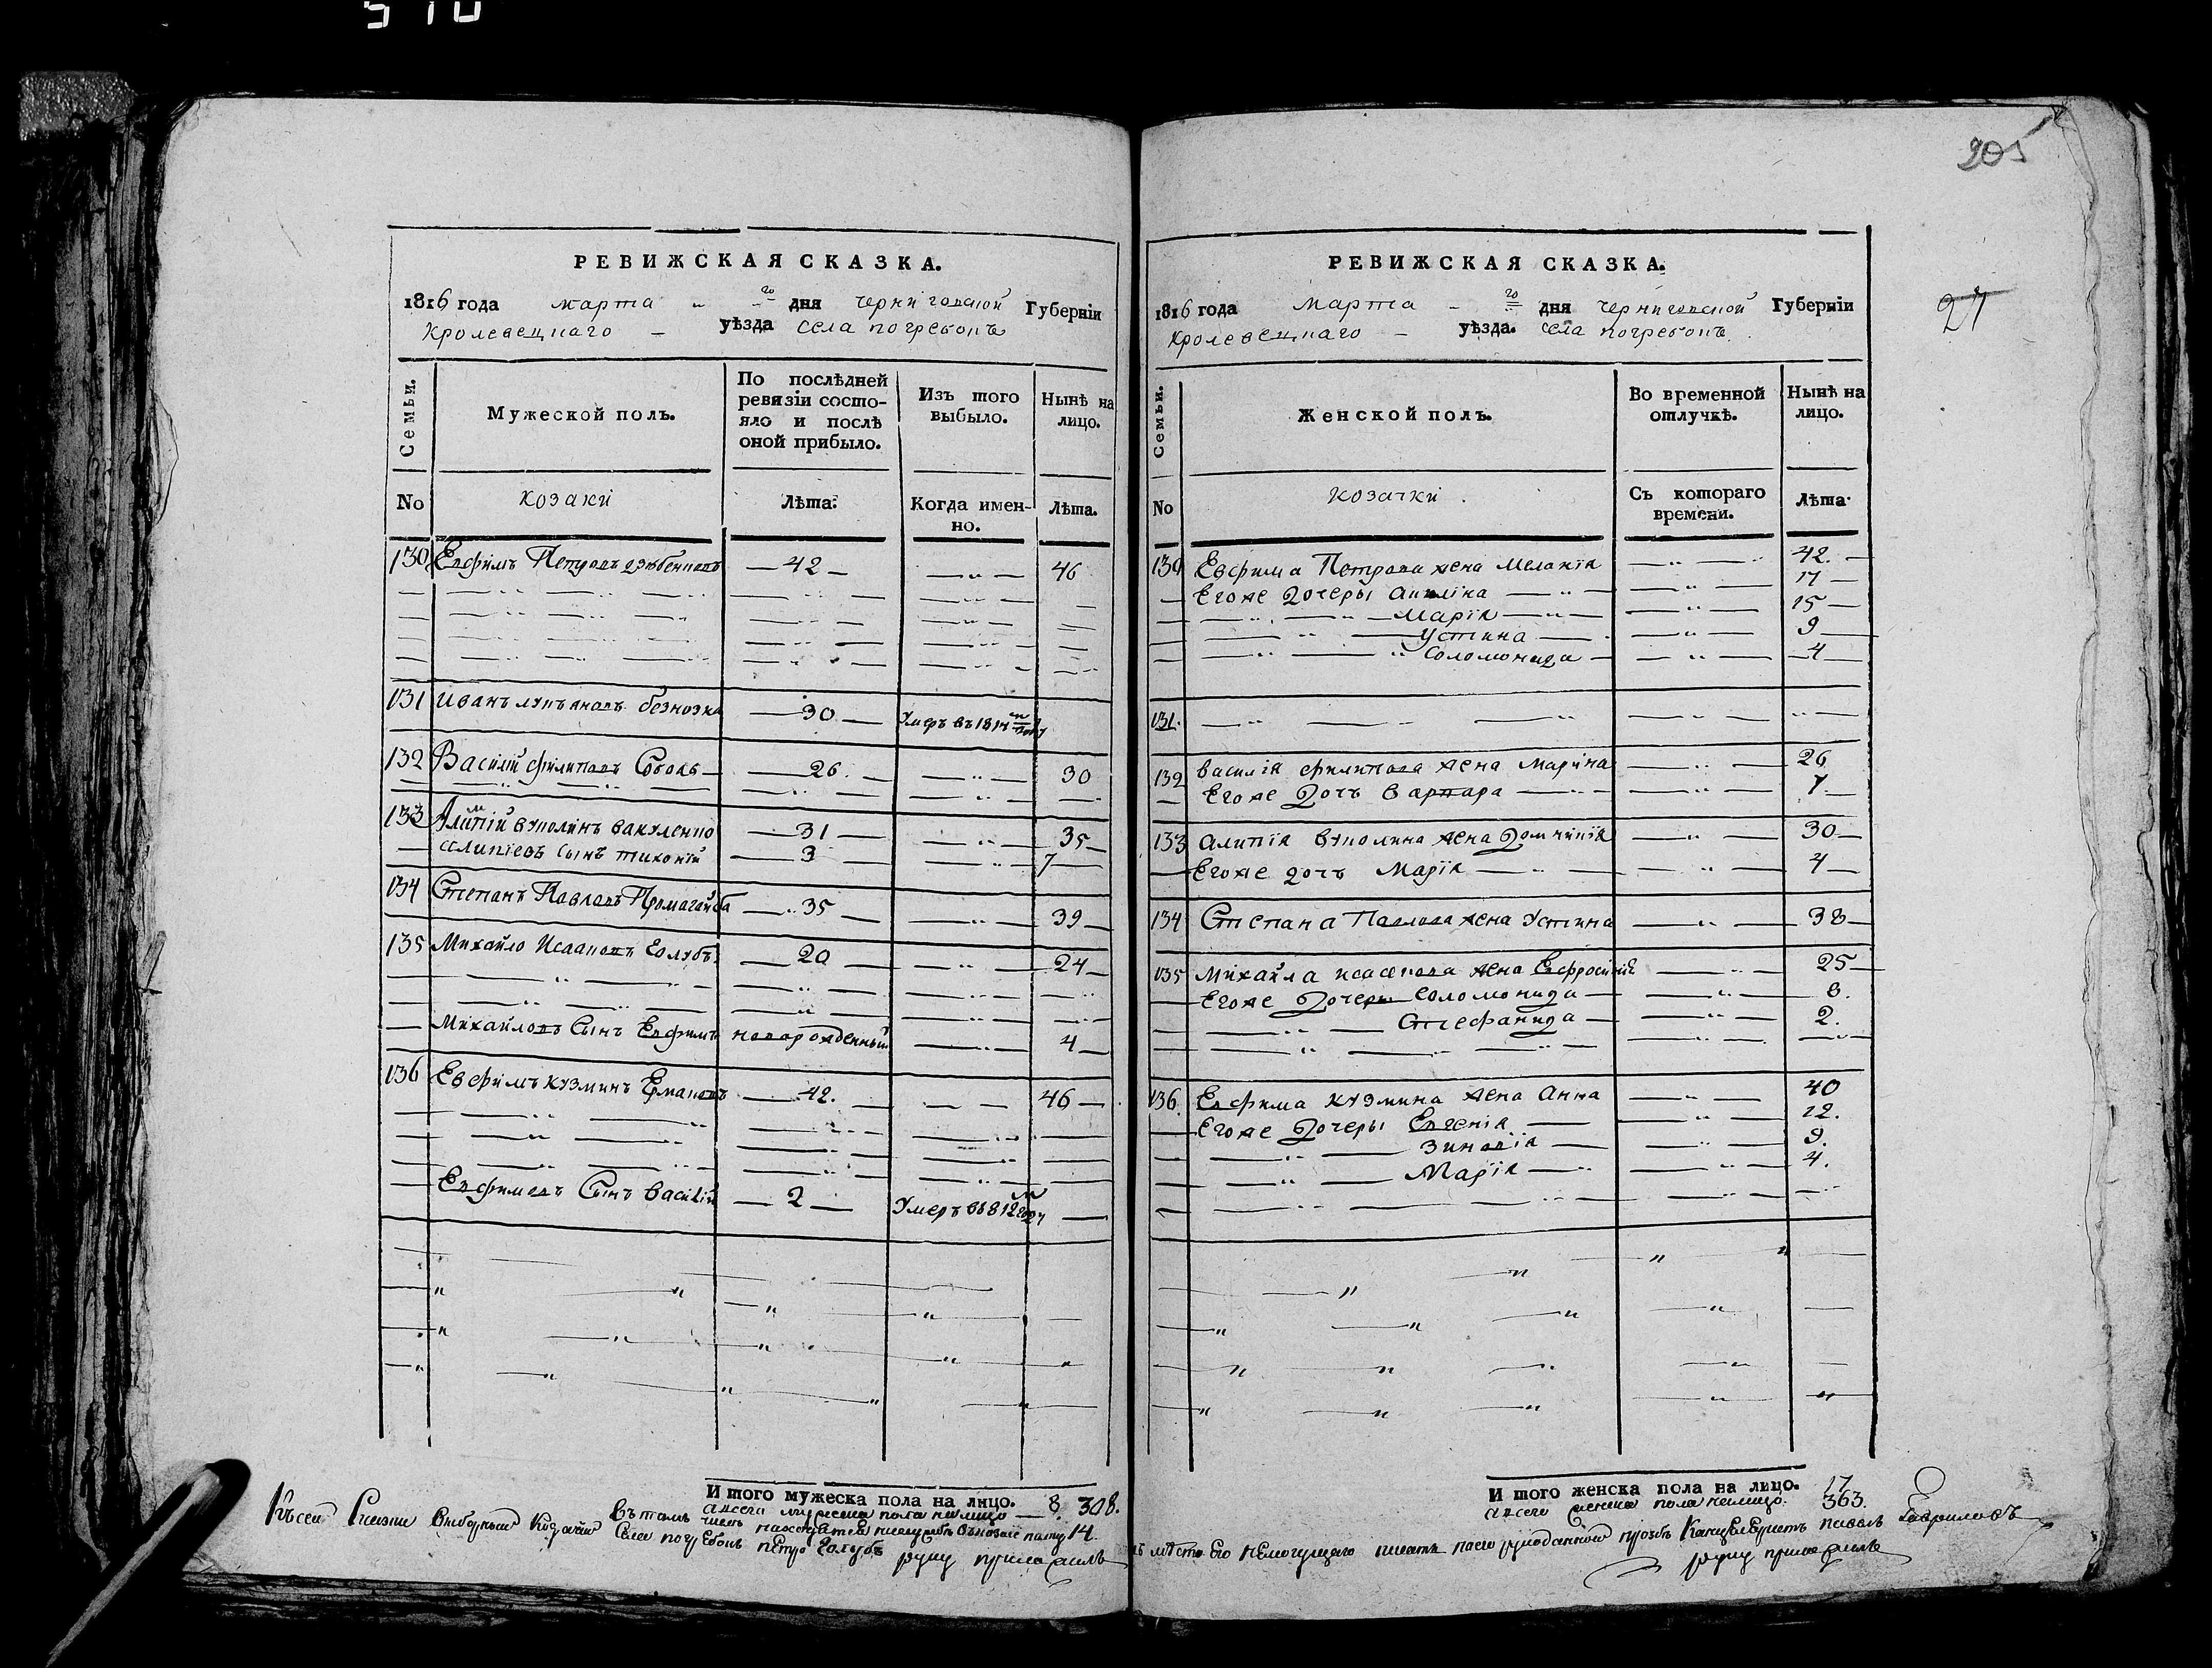 510
205
27
РЕВИЖСКАЯ СКАЗКА.
1816 года марта го дня черниговской Губерніи
Кролевецкаго уѣзда села погребовъ
Семьи.
Мужеской полъ.
По послѣдней ревизіи состояло и послѣ оной прибыло.
Изъ того выбыло.
Нынѣ на лицо.
No козаки Лѣта. Когда именно. Лѣта.
130 Евфимъ Петровъ 42 46
131 Иванъ лукъяновъ безнозка 30 Умеръ въ 1814м году
132 Василій филиповъ Соболь 26. 30
133 Алипій вуколинъ вакуленко 31 35
алипіевъ сынъ тихоній 3 7
134 Степанъ Павловъ Промагайба 35 39
135 Михайло Исааковъ Голубъ 20 24
Михайловъ Сынъ Евфимъ новорожденный 4
136 Евфимъ кузминъ Ермаковъ 42. 46
Евфимовъ Сынъ василій 2 Умеръ въ 812м году
И того мужеска пола на лицо. 8.
авсего мужеска пола налицо 308.
въ томъ числѣ находятся
14.
Къ сей Сказки выборный козачій села погребовъ петро Голубъ
руку приложилъ
РЕВИЖСКАЯ СКАЗКА.
1816 года марта го дня черниговской Губерніи
Кролевецкаго уѣзда. села погребовъ.
Семьи.
Женской полъ.
Во временной отлучкѣ.
Нынѣ на лицо.
No козачки. Съ котораго времени. Лѣта.
130 Евфима Петрова жена Меланія 42.
Егоже дочеры акилина 17
Марія 15
Устина 9
Соломонида 4
131.
132 василія филипова жена Марина 26
Егоже дочъ варвара 7
133 алипія вуколина жена Домникія 30
Егоже дочъ Марія 4
134 Степана Павлова жена Устина 38
135 Михайла исаакова жена Евфросинія 25
Егоже дочеры Соломонида 8.
Стефанида 2.
136. Евфима кузмина жена Анна 40
Егоже дочеры Евгенія 12.
Зиновія 9.
Марія 4.
И того женска пола на лицо. 17
авсего женска пола налицо. 363.
вмѣсто его немогущаго писать по его рукоданной прозбѣ Канцеляристъ павелъ Гавриловъ
руку приложилъ